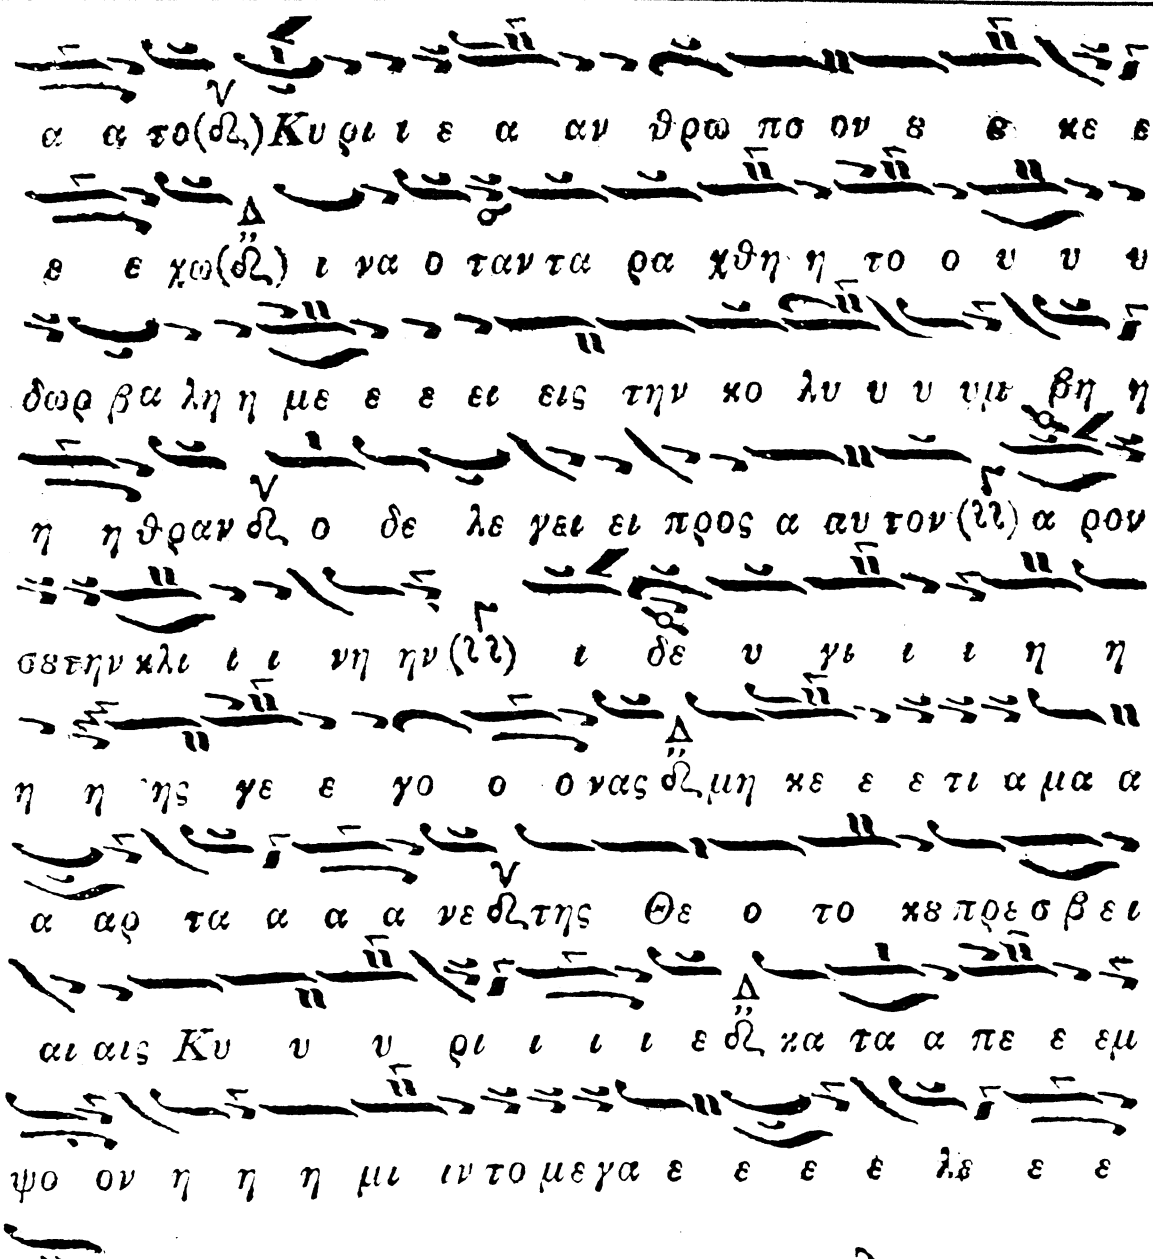 α α το(δι) Κυ ρι ι ε α αν θρω πο ον ȣ ȣ κε ε
ε ε χω(δι) ι να ο ταν τα ρα χθη η το ο υ υ υ
δωρ βα λη η με ε ε ει εις την κο λυ υ υ υμ βη η
η η θραν ο δε λε γει ει προς α αυ τον α ρον
σȣ την κλι ι ι νη ην ι δε υ γι ι ι η η
η η ης γε ε γο ο ο νας μη κε ε ε τι α μα α
α αρ τα α α α νε της Θε ο το κȣ πρε σβ ει
αι αις Κυ υ υ ρι ι ι ι ε κα τα α πε ε εμ
ψο ον η η η μι ιν το με γα ε ε ε ε λε ε ε